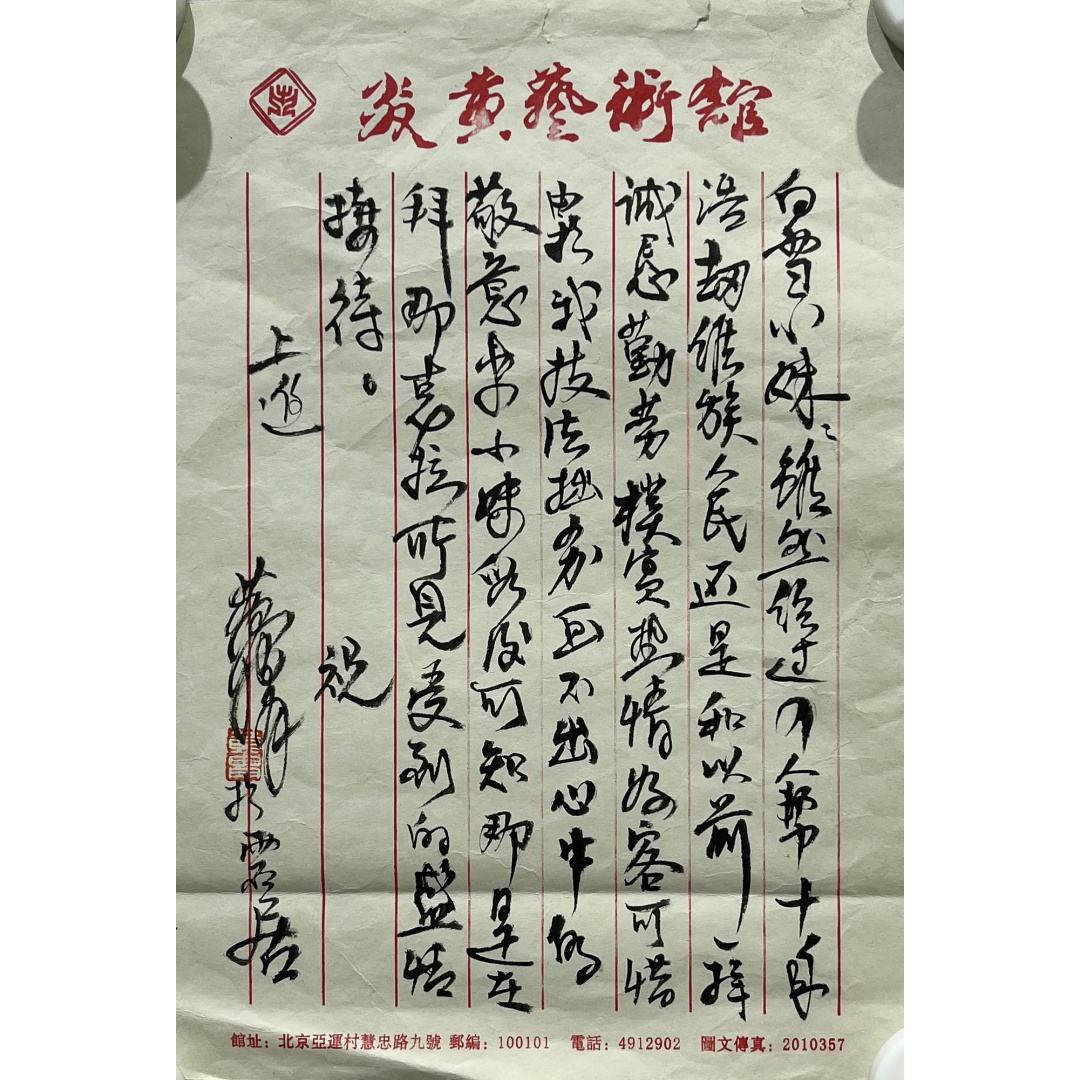 炎黃藝術館
白雪小妹：雖然經过了人幫十年
浩劫維族人民还是和以前一樣
誠懇勤劳樸實热情好客可惜
我技法拙劣画不出心中的
敬意小妹形後可知那是在
拜那克拉所見受到的盛情
接待。
祝
上進
黄胄
於雲居
館址：北京亞運村慧忠路九號 郵編：100101 電話：4912902 圖文傳真：2010357